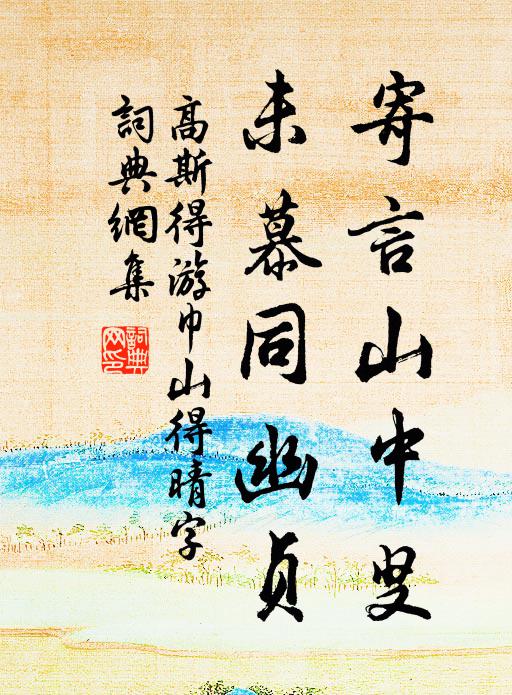 寄言山中叟
未慕同幽貞
高斯得游巾山得晴字
詞典網集
詞典網印